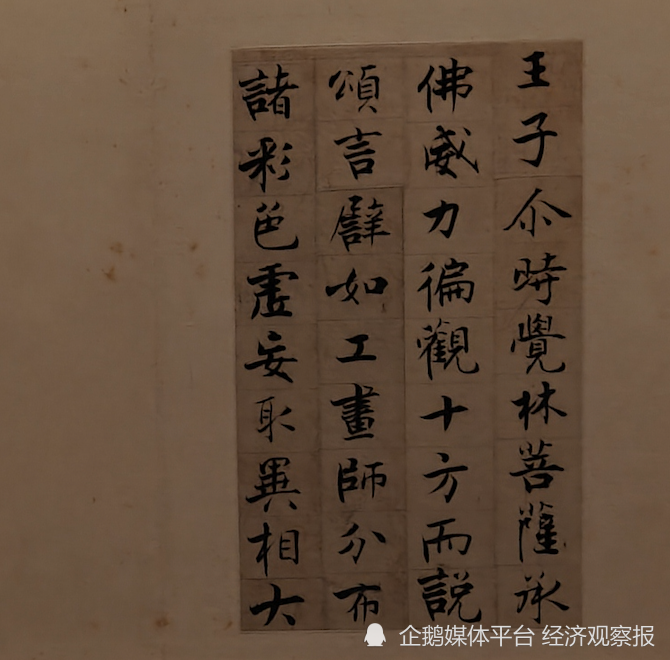 王子尒時覺林菩薩承
佛威力徧觀十方而說
頌言譬如工畫師分布
諸彩色虛妄取異相大
企鹅媒体平台 经济观察报